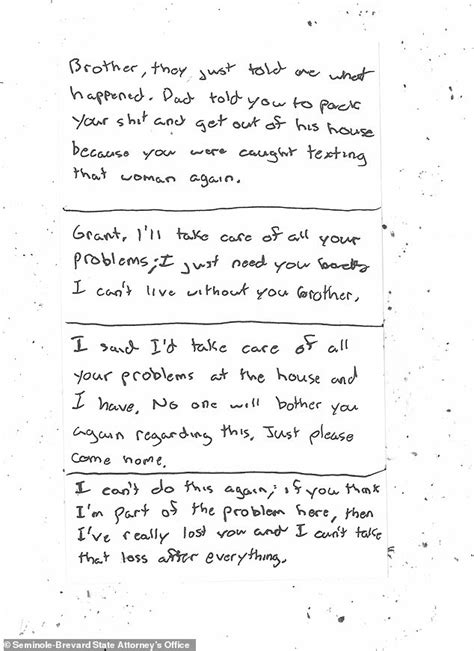 Brother, they just told me what
happened. Dad told you to pack
your shit and get out of his house
because you were caught texting
that woman again.
Grant, I'll take care of all your
problems; I just need you
I can't live without you brother.
I said I'd take care of all
your problems at the house and
I have. No one will bother you
again regarding this. Just please
come home.
I can't do this again; if you think
I'm part of the problem here, then
I've really lost you and I can't take
that loss after everything.
© Seminole-Brevard State Attorney's Office